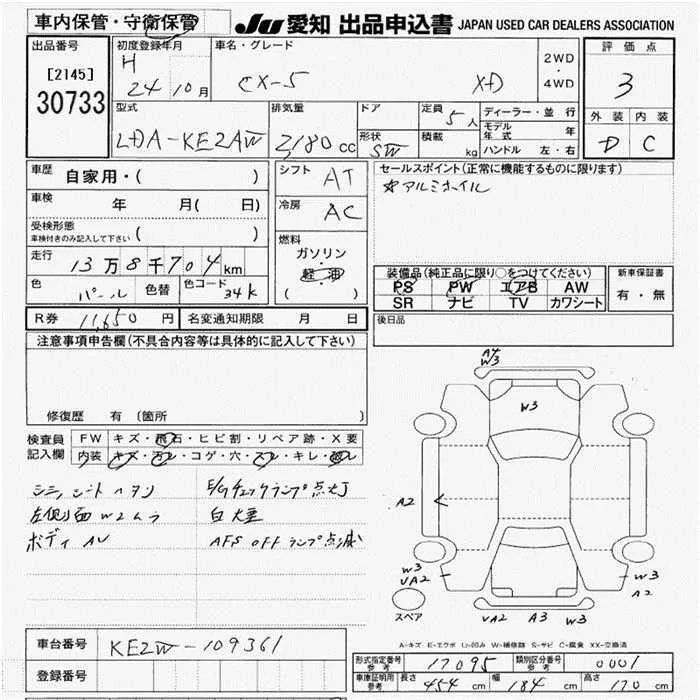 車内保管・守衛保管
JU 愛知 出品申込書 JAPAN USED CAR DEALERS ASSOCIATION
出品番号
[2145]
30733
初度登録年月
H
24 10月
車名・グレード
CX-5 XD
2WD
・
4WD
評価点
3
外装 内装
D C
型式
LDA-KE2AW
排気量
2,180 cc
ドア
形状
SW
定員 5人
積載 kg
ディーラー・並行
モデル年式 年
ハンドル 左・右
車歴 自家用・( )
車検 年 月( 日)
受検形態
車検付きのみ記入して下さい ( )
走行 13万8千704km
色 パール 色替 色コード 34K
シフト AT
冷房 AC
燃料
ガソリン
・
軽油
( )
セールスポイント(正常に機能するものに限ります)
☆アルミホイル
装備品(純正品に限り○をつけてください)
PS PW エアB AW
SR ナビ TV カワシート
新車保証書
有・無
R券 11,650 円 名変通知期限 月 日
後日品
注意事項申告欄(不具合内容等は具体的に記入して下さい)
修復歴 有 (箇所 )
検査員
記入欄
FW キズ・飛石・ヒビ割・リペア跡・X要
内装 キズ・汚レ・コゲ・穴・スレ・キレ・破レ
シミ,シートヘタリ
左側面W2ムラ
ボディAU
E/Gチェックランプ点灯
AFS OFFランプ点滅
A4
W3
W3
A2
W3
UA2
W3
A2
UA2 A3 W3
スペア
A-キズ E-エクボ U-凹み W-補修跡 S-サビ C-腐食 XX-交換済
車台番号 KE2W-109361
登録番号
形式指定番号 参考 17095 類別区分番号 参考 0001
車庫証明用 参考 長さ 454 cm 幅 184 cm 高さ 170 cm